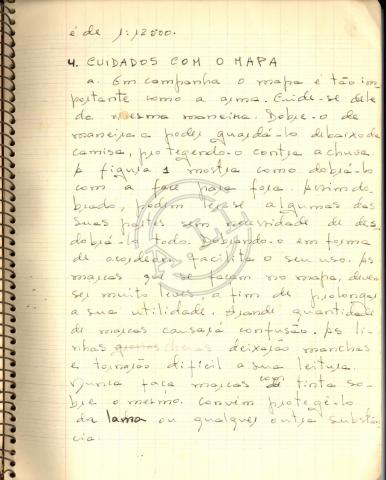 é de 1:12000.
4. CUIDADOS COM O MAPA
a. Em campanha o mapa é tão im
portante como a arma. Cuide-se dele
da mesma maneira. Dobre-o de
maneira a poder guardá-lo debaixo da
camisa, protegendo-o contra a chuva.
A figura 1 mostra como dobrá-lo
com a face para fora. Assim do-
brado, podem ler-se algumas das
suas partes sem necessidade de des
dobrá-lo todo. Dobrando-o em forma
de acordeon facilita o seu uso. As
marcas que se façam no mapa, devem
ser muito leves, a fim de prolongar
a sua utilidade. Grande quantidade
de marcas causará confusão. As li-
nhas cheias deixarão manchas
e tornarão difícil a sua leitura.
Nunca faça marcas com tinta so-
bre o mesmo. Convém protegê-lo
da lama ou qualquer outra substân
cia.